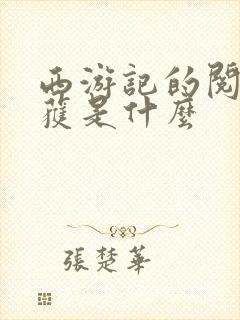 西游記的閱
蓷是什麼
張楚華